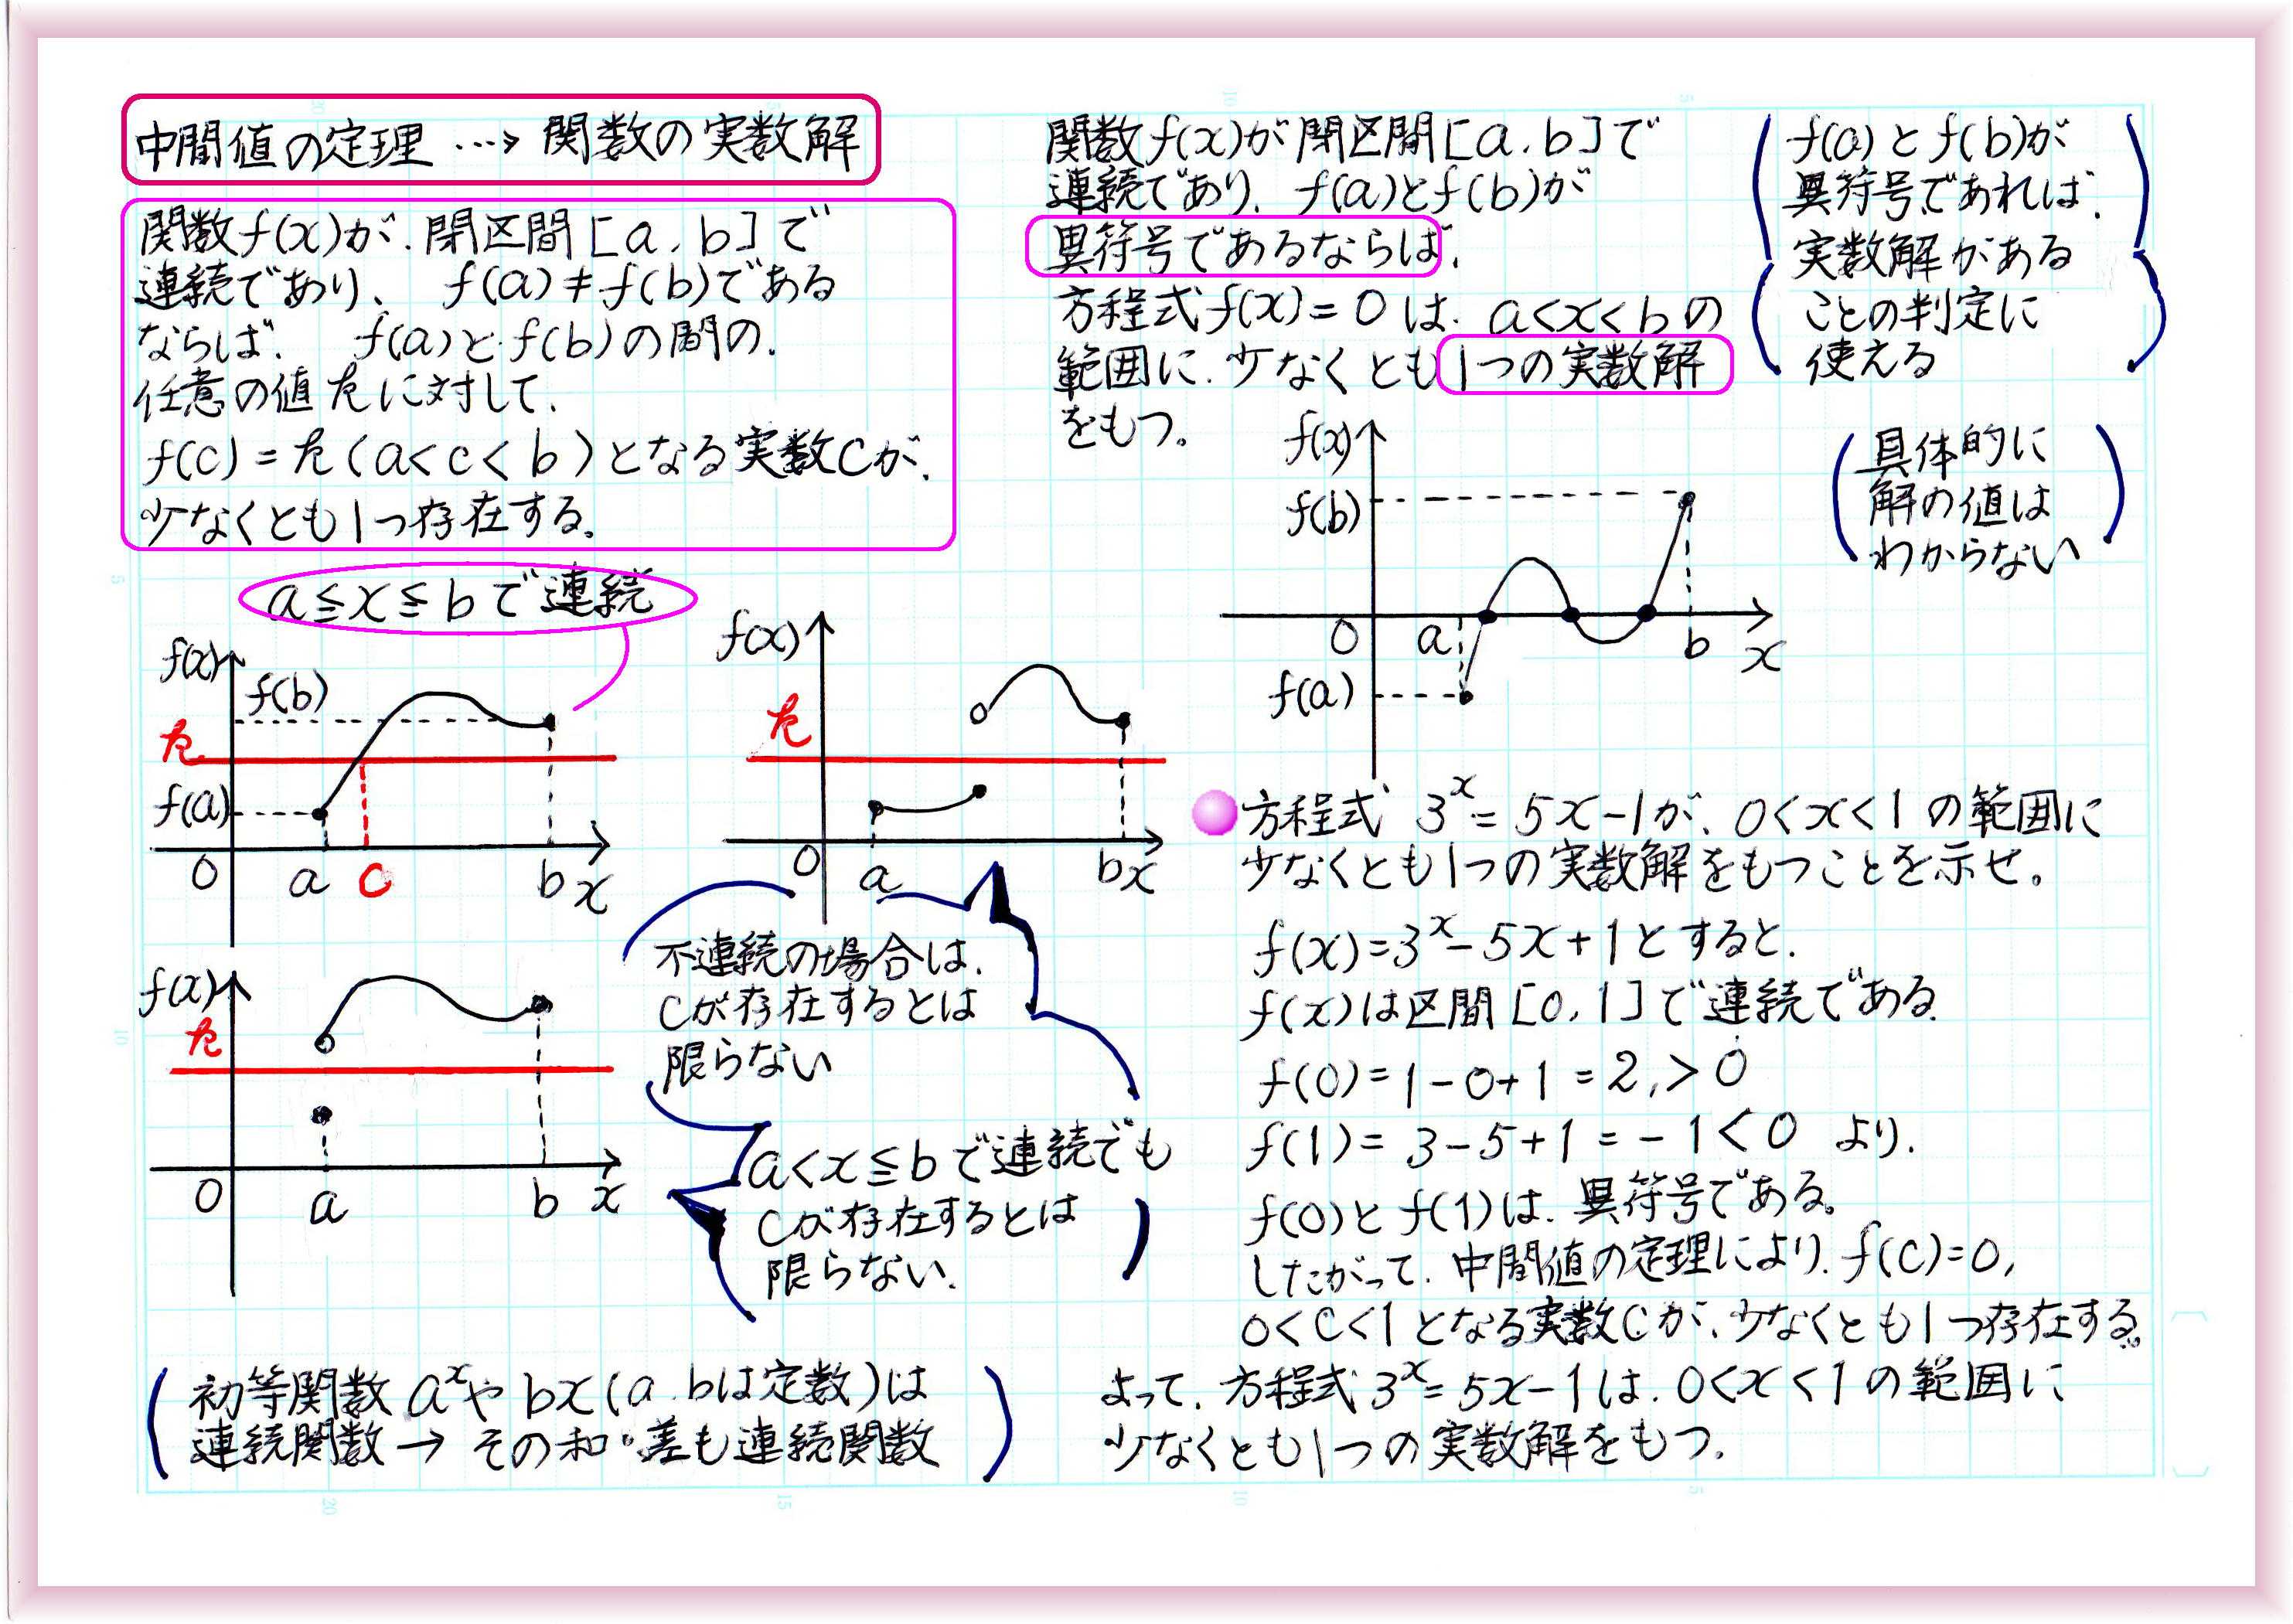 中間値の定理 …→ 関数の実数解
関数f(x)が、閉区間[a, b]で
連続であり、 f(a)≠f(b)である
ならば、 f(a)とf(b)の間の、
任意の値kに対して、
f(c)=k(a<c<b)となる実数cが、
少なくとも1つ存在する。
a≦x≦bで連続
f(x)
f(b)
k
f(a)
0 a c b x
f(x)
k
0 a b x
f(x)
k
0 a b x
不連続の場合は、
cが存在するとは
限らない
a<x≦bで連続でも
cが存在するとは
限らない。
初等関数 a^xや bx(a, bは定数)は
連続関数→ その和・差も連続関数
関数f(x)が閉区間[a, b]で
連続であり、f(a)とf(b)が
異符号であるならば、
方程式f(x)=0は、a<x<bの
範囲に、少なくとも1つの実数解
をもつ。
f(a)とf(b)が
異符号であれば、
実数解がある
ことの判定に
使える
具体的に
解の値は
わからない
f(x)
f(b)
0 a b x
f(a)
方程式 3^x=5x-1が、0<x<1の範囲に
少なくとも1つの実数解をもつことを示せ。
f(x)=3^x-5x+1とすると、
f(x)は区間[0, 1]で連続である
f(0)=1-0+1=2,>0
f(1)=3-5+1=-1<0 より、
f(0)とf(1)は、異符号である。
したがって、中間値の定理により、f(c)=0,
0<c<1となる実数cが、少なくとも1つ存在する。
よって、方程式3^x=5x-1は、0<x<1の範囲に
少なくとも1つの実数解をもつ。
20
10
5
5
10
20
15
10
5